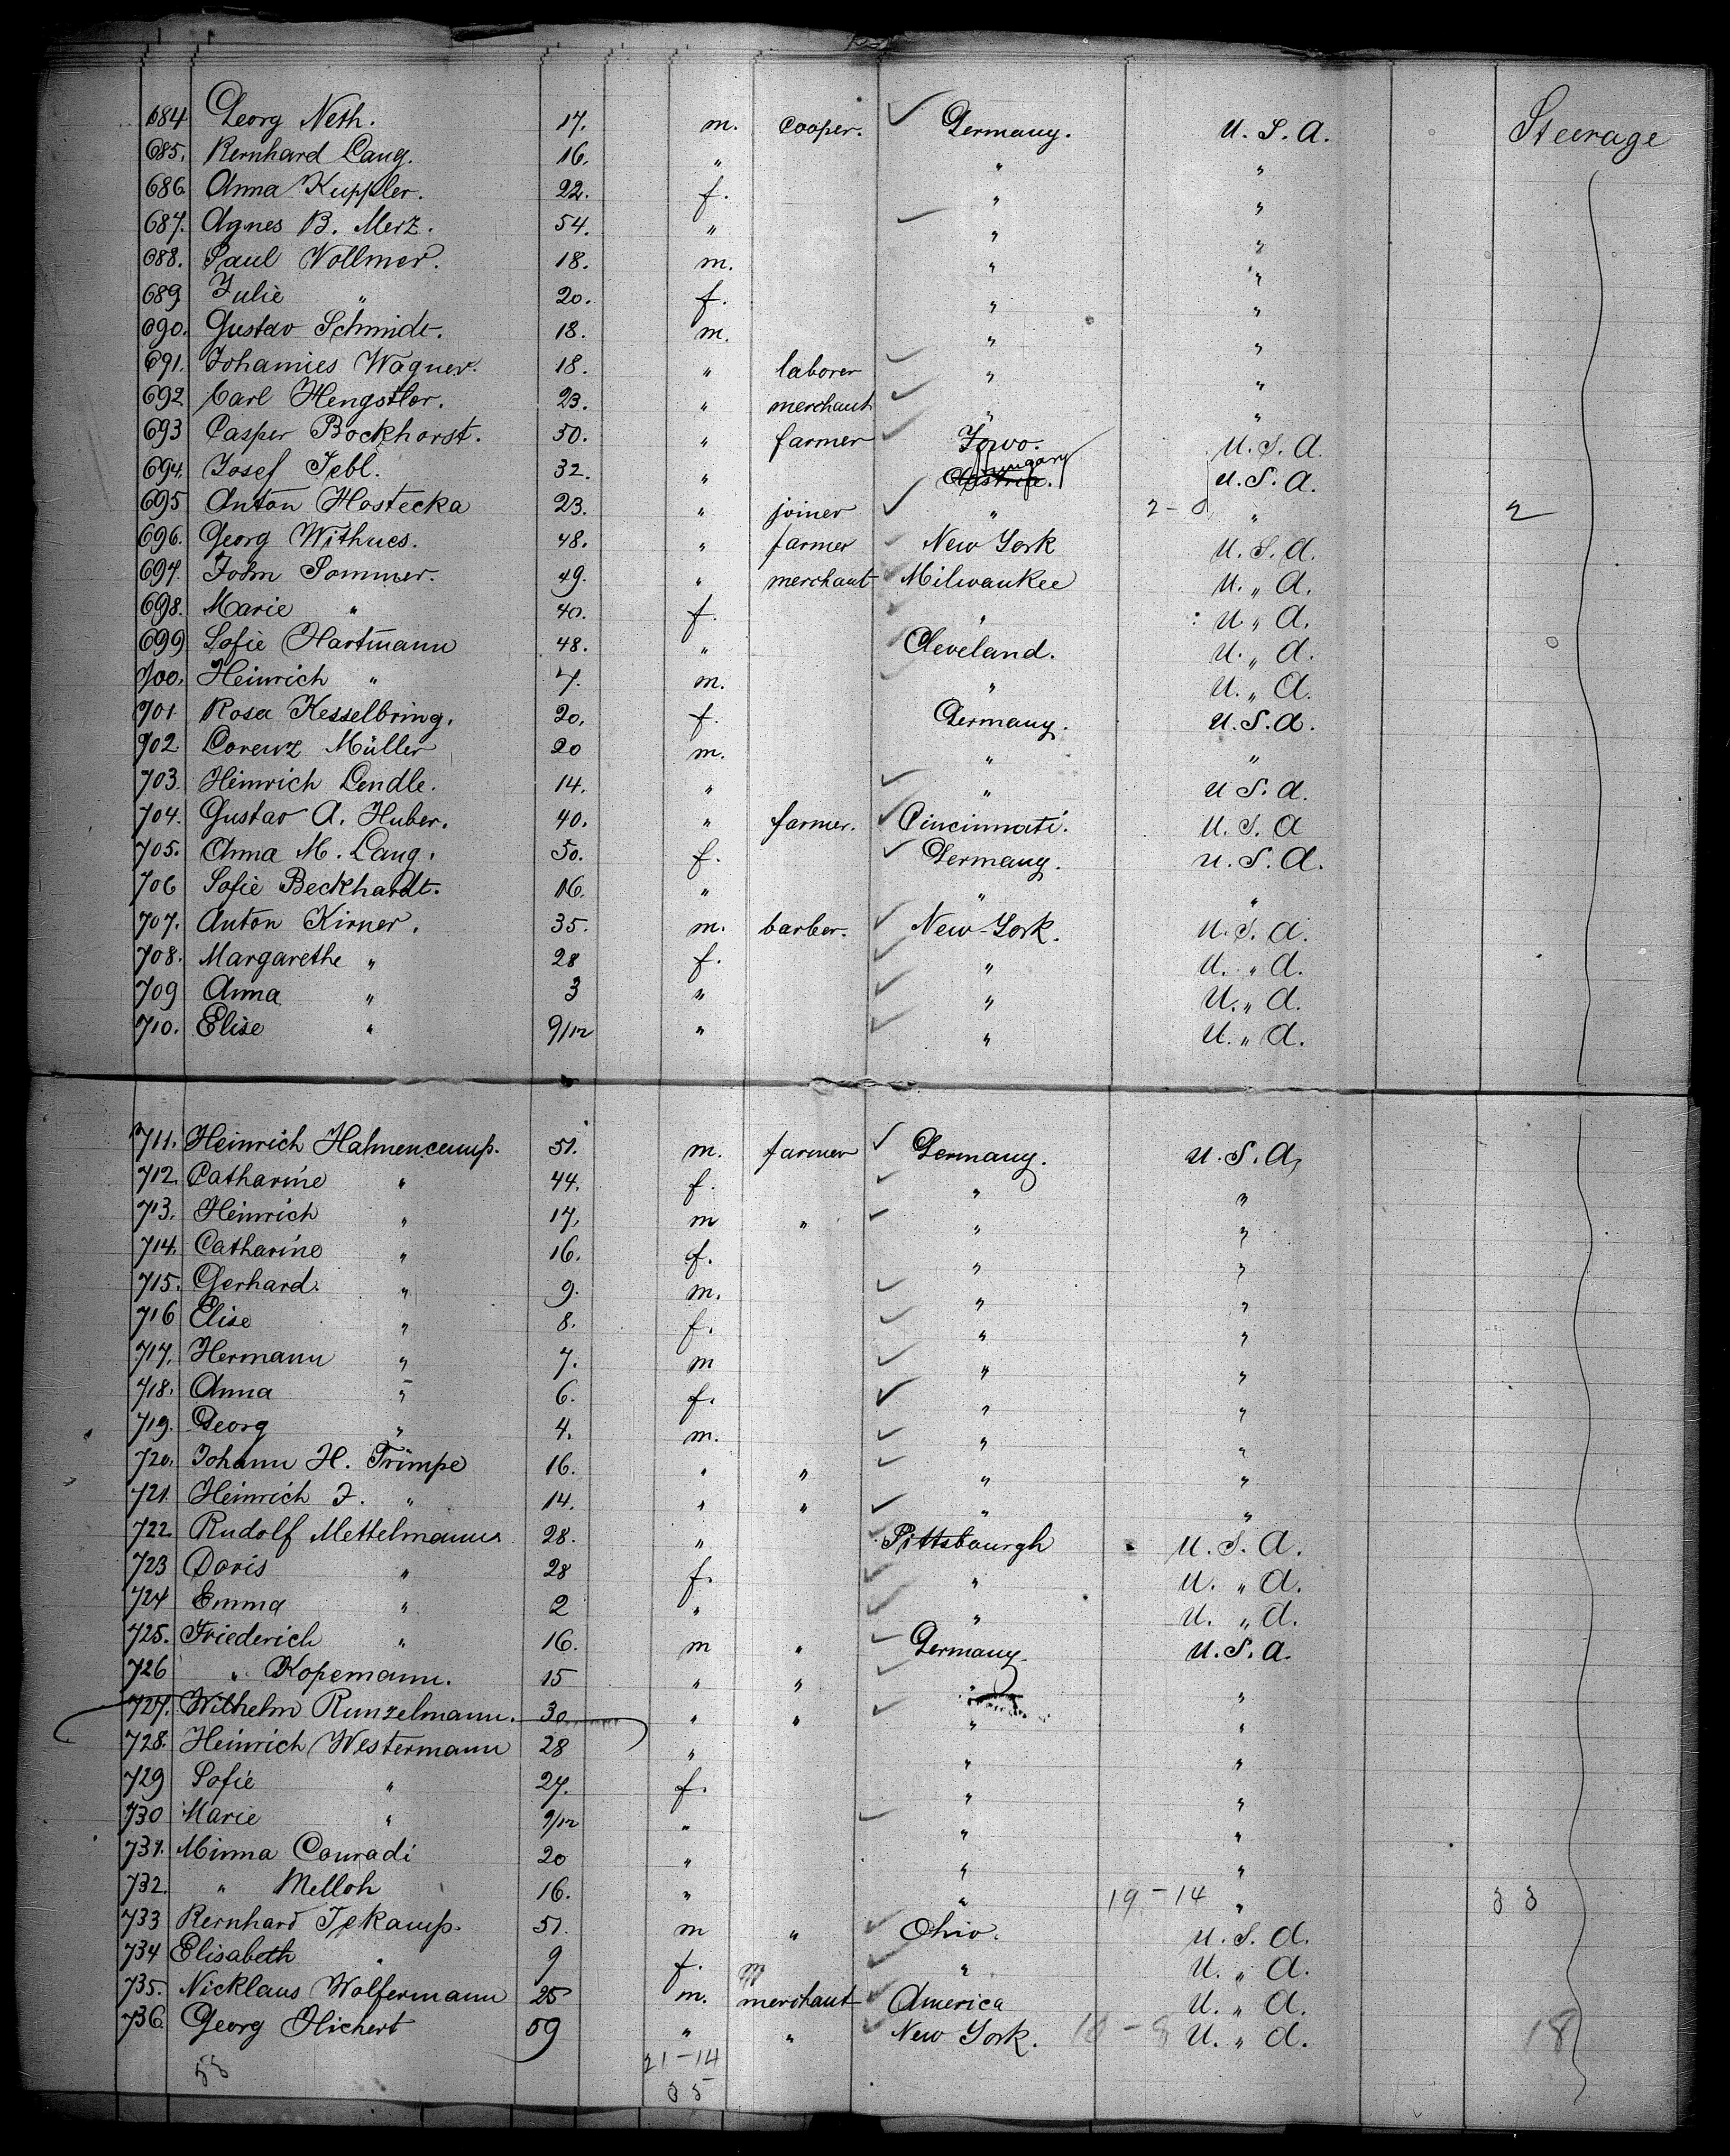 684 Georg Neth. 17. m. cooper. Germany. U. S. A. Steerage
685. Bernhard Lang. 16. " " "
686. Anna Kuppler. 22. f. " "
687. Agnes B. Merz. 54. " " "
688. Paul Vollmer. 18. m. " "
689 Julie " 20. f. " "
690. Gustav Schmidt. 18. m. " "
691. Johannes Wagner. 18. " laborer " "
692 Carl Hengstler. 23. " merchant " "
693 Casper Bockhorst. 50. " farmer Iowo. U. S. A.
694. Josef Tebl. 32. " Austria. Hungary U. S. A.
695 Anton Hostecka 23. " joiner " 2 - 0 " 2
696. Georg Withues. 48. " farmer New York U. S. A.
697. John Sommer. 49. " merchant Milwaukee U. " A.
698. Marie " 40. f. " U. " A.
699 Sofie Hartmann 48. " Cleveland. U. " A.
700. Heinrich " 7. m. " U. " A.
701. Rosa Kesselbring. 20. f. Germany. U. S. A.
702 Lorenz Müller 20 m. " "
703. Heinrich Lendle. 14. " " U S. A.
704. Gustav A. Huber. 40. " farmer. Cincinnati. U. S. A
705. Anna M. Lang. 50. f. Germany. U. S. A.
706 Sofie Beckhardt. 16. " " "
707. Anton Kirner. 35. m. barber. New-York. U. S. A.
708. Margarethe " 28 f. " U. " A.
709 Anna " 3 " " U. " A.
710. Elise " 9/12 " " U. " A.
711. Heinrich Hahnencamp. 51. m. farmer Germany. U. S. A.
712. Catharine " 44. f. " "
713. Heinrich " 17. m " " "
714. Catharine " 16. f. " "
715. Gerhard. " 9. m. " "
716 Elise " 8. f. " "
717. Hermann " 7. m " "
718. Anna " 6. f. " "
719. Georg " 4. m. " "
720. Johann H. Trimpe 16. " " " "
721. Heinrich J. " 14. " " " "
722. Rudolf Mettelmann 28. " Pittsbourgh U. S. A.
723 Doris " 28 f. " U. " A.
724 Emma " 2 " " U. " A.
725. Friederich " 16. m " Germany. U. S. A.
726 " Kopemann. 15 " " " "
727. Wilhelm Runzelmann. 30 " " " "
728. Heinrich Westermann 28 " " "
729 Sofie " 27. f. " "
730 Marie " 9/12 " " "
731. Minna Conradi 20 " " "
732. " Melloh 16. " " 19 - 14 " 33
733 Bernhard Tekamp. 51. m " Ohio. U. S. A.
734 Elisabeth " 9 f. " U. " A.
735. Nicklaus Wolfermann 25 m. merchant America U. " A.
736. Georg Hichert 59 " " New York. 10 - 8 U. " A. 18
53 21 - 14
35